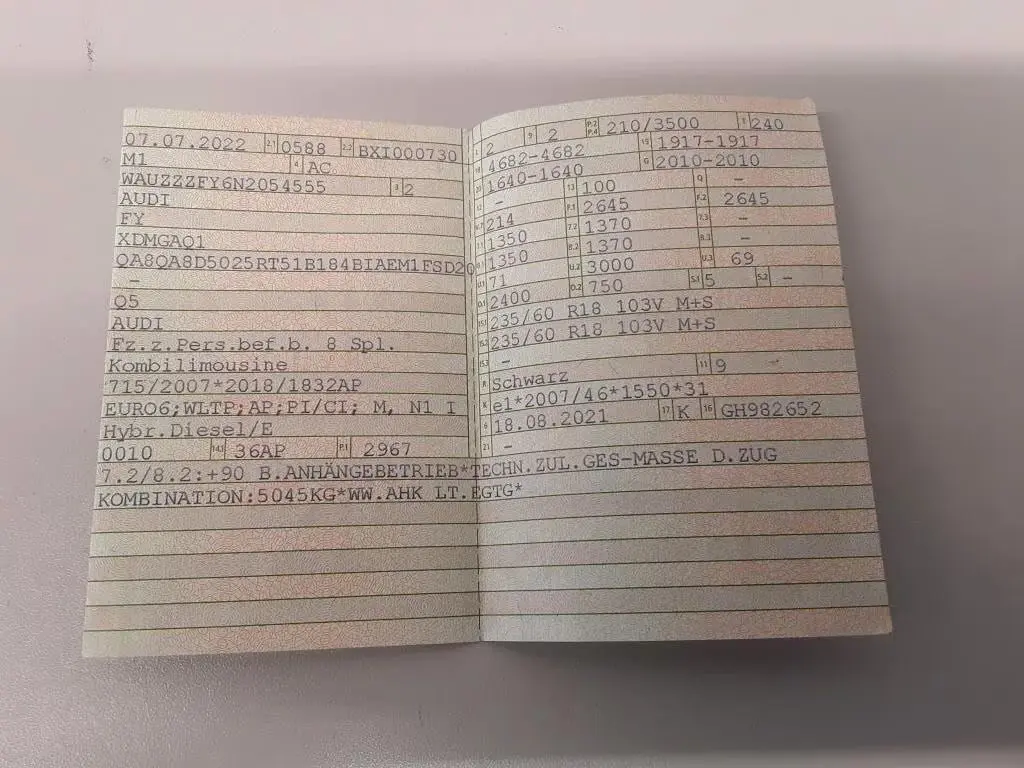 07.07.2022 2.1 0588 2.2 BXI000730
M1 4 AC
WAUZZZFY6N2054555 3 2
AUDI
FY
XDMGAQ1
QA8QA8D5025RT51B184BIAEM1FSD20
–
Q5
AUDI
Fz.z.Pers.bef.b. 8 Spl.
Kombilimousine
715/2007*2018/1832AP
EURO6;WLTP;AP;PI/CI; M, N1 I
Hybr.Diesel/E
0010 14.1 36AP P.1 2967
2 9 2 P.2 P.4 210/3500 T 240
18 4682-4682 19 1917-1917
20 1640-1640 G 2010-2010
12 – 13 100 Q –
214 F.1 2645 F.2 2645
7.1 1350 7.2 1370 7.3 –
8.1 1350 8.2 1370 8.3 –
U.1 71 U.2 3000 U.3 69
O.1 2400 O.2 750 S.1 5 S.2 –
15.1 235/60 R18 103V M+S
15.2 235/60 R18 103V M+S
15.3 –
R Schwarz 11 9 –
K e1*2007/46*1550*31
6 18.08.2021 17 K 16 GH982652
21 –
7.2/8.2:+90 B.ANHÄNGEBETRIEB*TECHN.ZUL.GES-MASSE D.ZUG
KOMBINATION:5045KG*WW.AHK LT.EGTG*